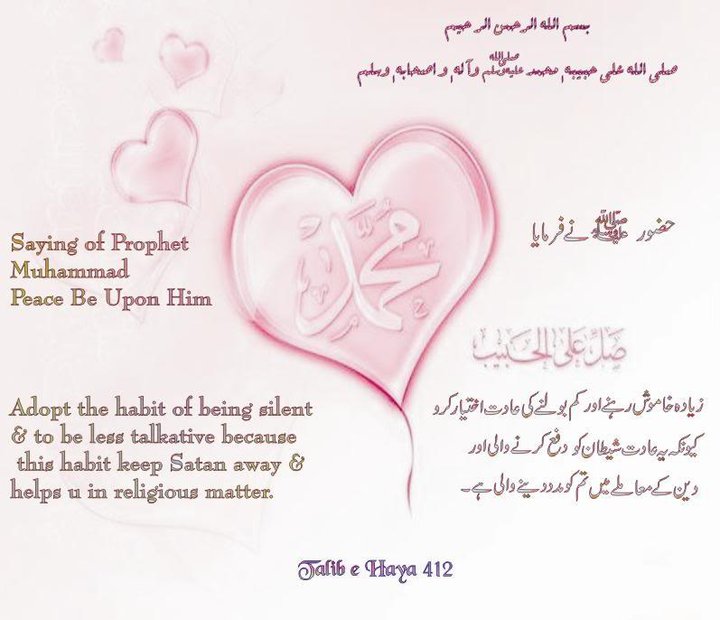 بسم الله الرحمن الرحيم
صلى الله على حبيبه محمد ﷺ وآله و اصحابه وسلم
Saying of Prophet
Muhammad
Peace Be Upon Him
محمد
حضور ﷺ نے فرمایا
صَلِّ عَلَى الحَبِيب
Adopt the habit of being silent
& to be less talkative because
this habit keep Satan away &
helps u in religious matter.
زیادہ خاموش رہنے اور کم بولنے کی عادت اختیار کرو
کیونکہ یہ عادت شیطان کو دفع کرنے والی اور
دین کے معاملے میں تم کو مدد دینے والی ہے۔
Talib e Haya 412